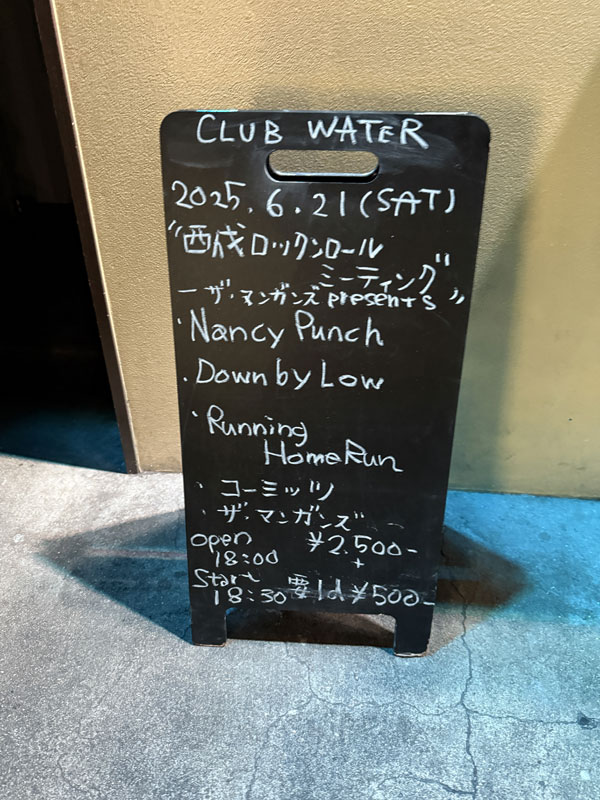 CLUB WATER
2025.6.21(SAT)
"西成ロックンロール
ミーティング"
ーザ・マンガンズ presents〃
・Nancy Punch
・Down by Low
・Running
HomeRun
・コーミッツ
・ザ・マンガンズ
open ¥2.500-
18:00 +
Start
18:30 要1d ¥500-